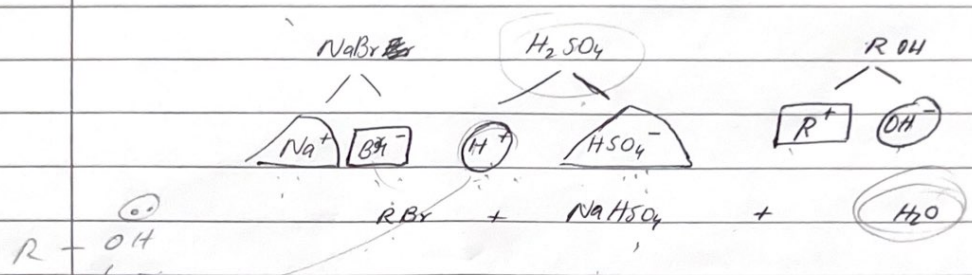 NaBr H₂SO₄ ROH
Na⁺ Br⁻ H⁺ HSO₄⁻ R⁺ OH⁻
RBr + NaHSO₄ + H₂O
R - OH